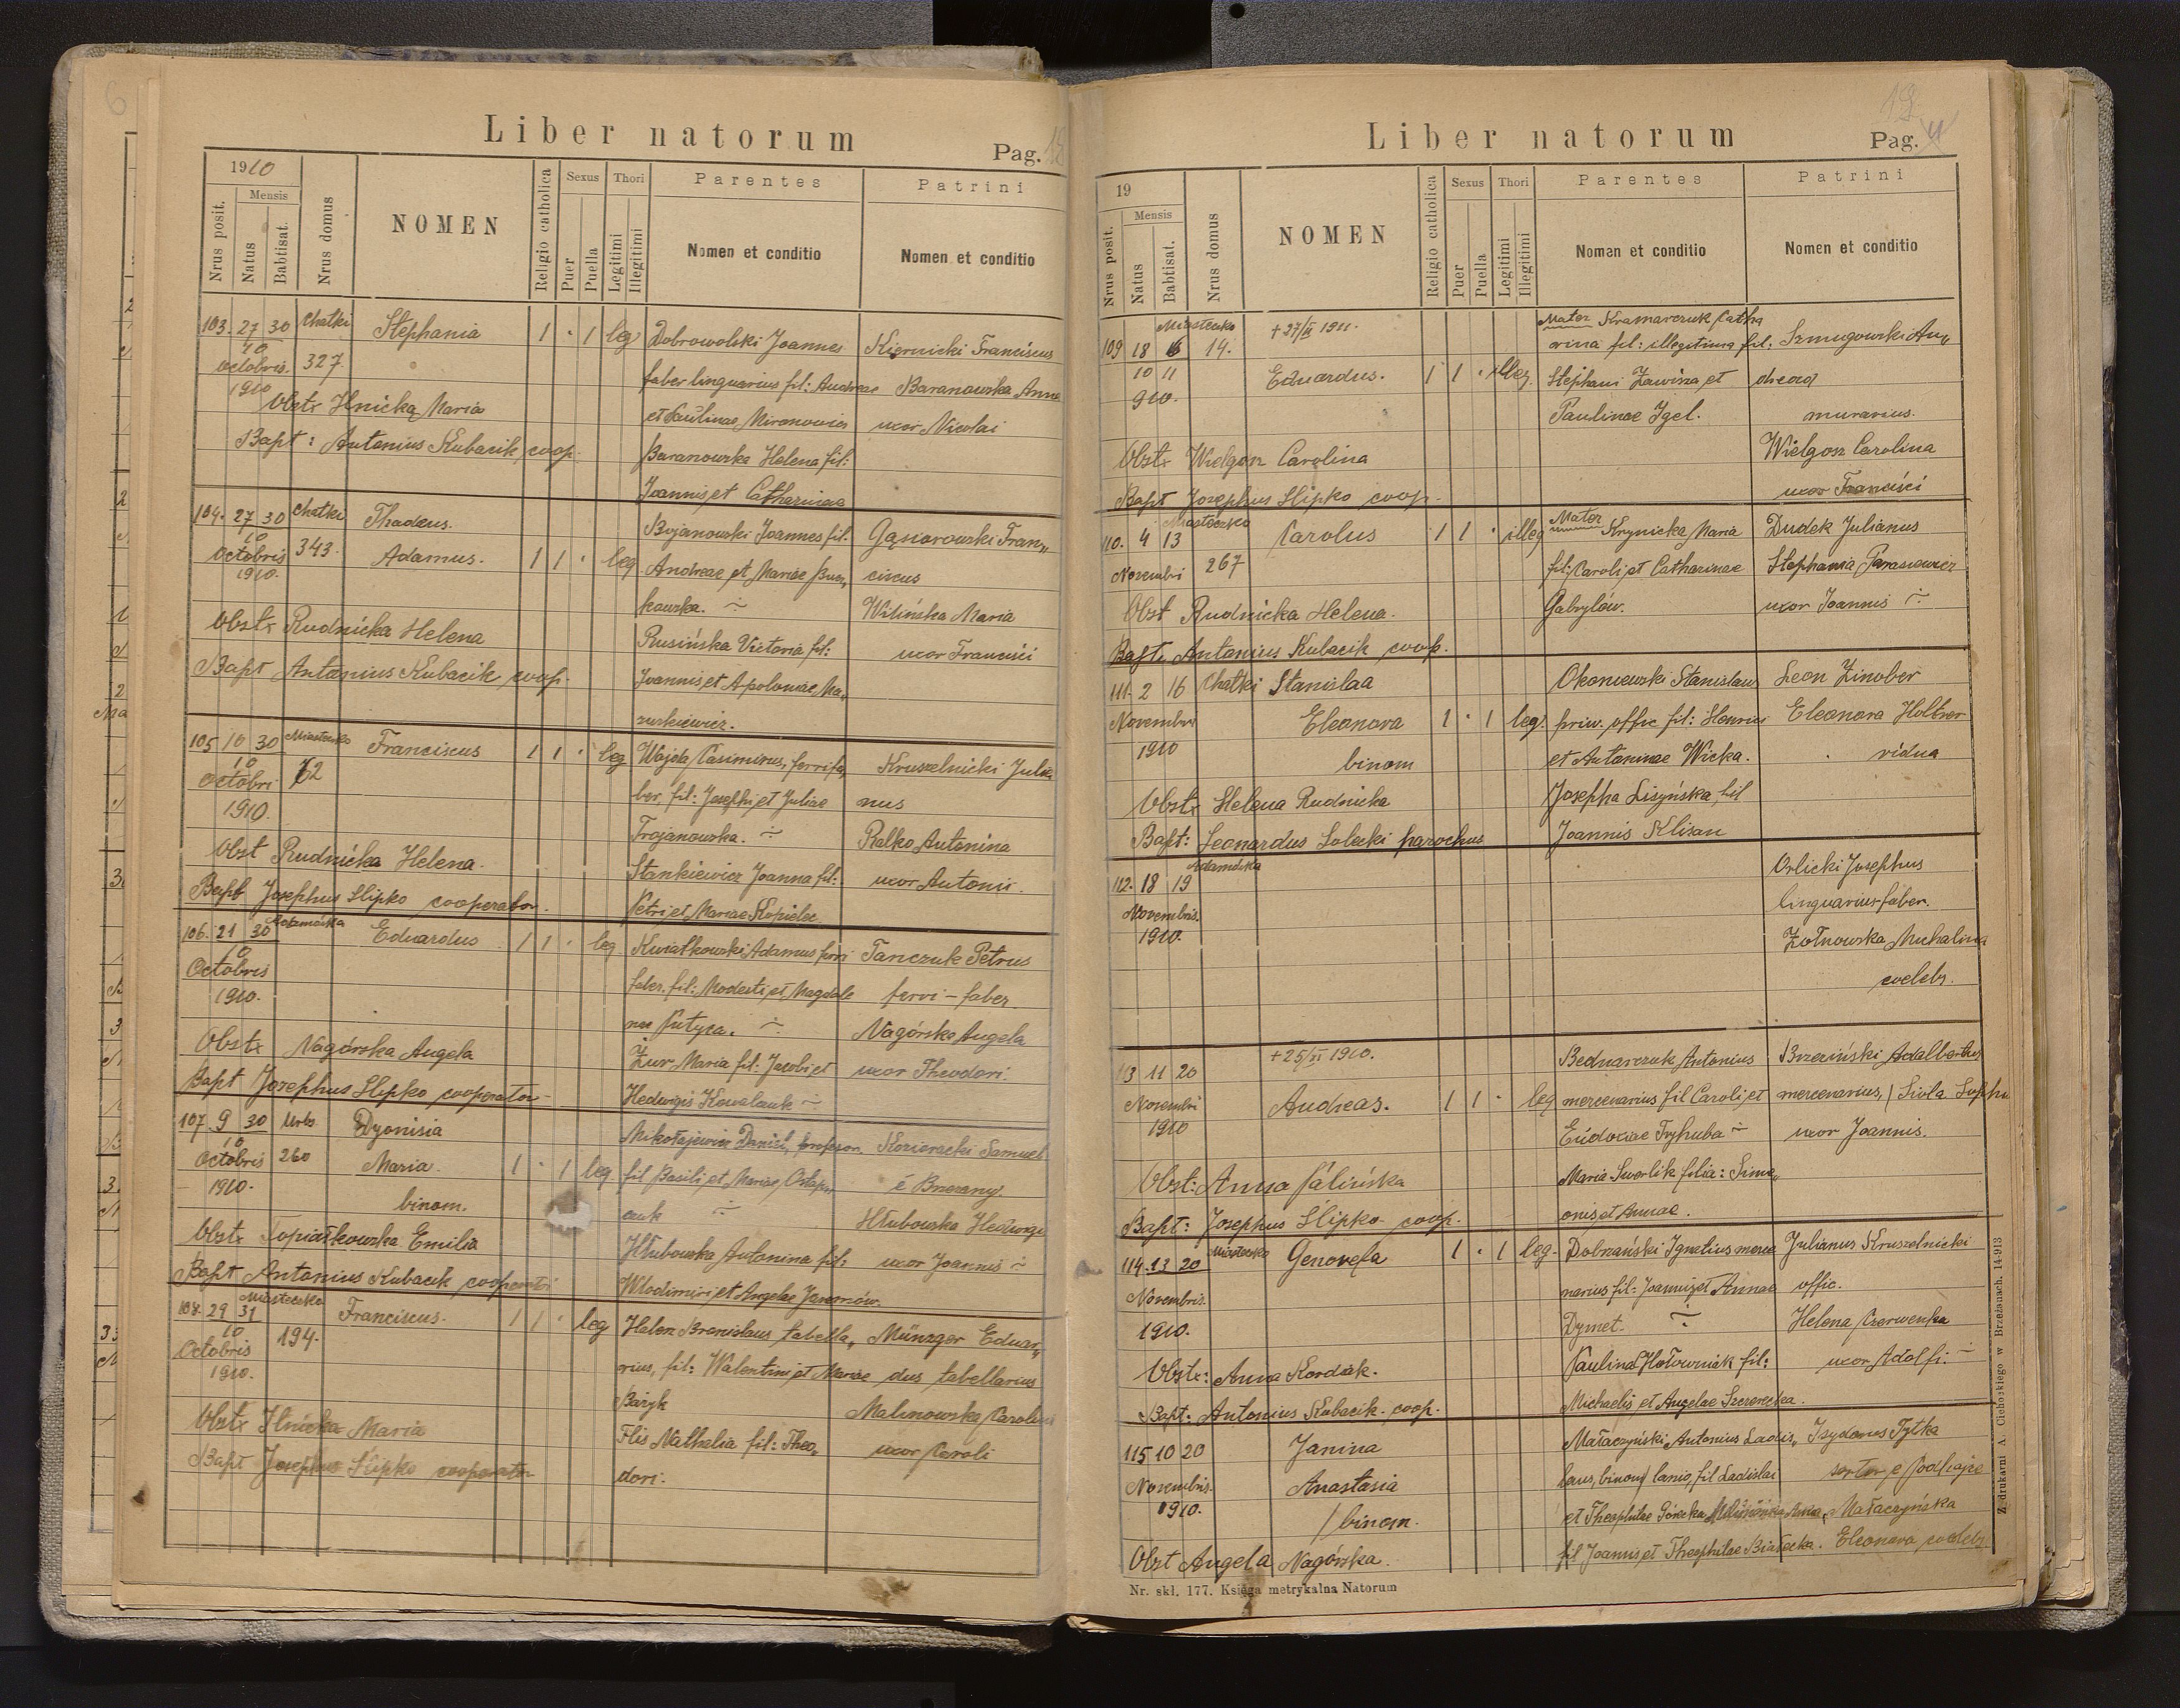 Liber natorum
Pag. 12
1910
Mensis
Nrus posit.
Natus
Babtisat.
Nrus domus
NOMEN
Religio catholica
Sexus
Puer
Puella
Thori
Legitimi
Illegitimi
Parentes
Nomen et conditio
Patrini
Nomen et conditio
103. 27 30 Chatki Stephania 1 · 1 leg Dobrowolski Joannes Kiernicki Franciscus
10
Octobris. 327. faber linguarius fil: Andreae Baranowska Anna
1910 et Paulinae Mironowicz uxor Nicolai
Obstx Ilnicka Maria
Bapt: Antonius Kubacik coop. Baranowska Helena fil:
Joannis et Catharinae
104. 27 30 Chatki Thadeus. Bojanowski Joannes fil. Gąsiorowski Fran„
10
Octobris 343. Adamus. 1 1 · leg Andreae et Mariae ciscus
1910. kowska. ÷ Wilińska Maria
Obstx Rudnicka Helena Rusińska Victoria fil: uxor Francisci
Bapt Antonius Kubacik coop. Joannis et Apoloniae Ma„
zurkiewicz.
105 10 30 Miasteczko Franciscus 1 1 · leg Wojda Casimirus, ferri fa„ Kruszelnicki Julia
10
Octobri 62 ber, fil: Josephi et Juliae nus
1910. Trojanowska. ÷ Ralko Antonina
Obst Rudnicka Helena. Stankiewicz Joanna fil: uxor Antonii.
Bapt Josephus Slipko cooperator. Petri et Mariae Kopielec
106. 21 30 Adamówka Eduardus 1 1 · leg Kwiatkowski Adamus ferri Tanczuk Petrus
10
Octobris faber. fil: Modesti et Magdale ferri-faber
1910. nae ÷ Nagórska Angela
Obstx Nagórska Angela Żur Maria fil: Jacobi et uxor Theodori.
Bapt Josephus Slipko cooperator Hedwigis Kowalczuk ÷
107. 9 30 Urbs Dyonisia Mikołajewicz Daniel, professor, Samuel
10
Octobris 260 Maria. 1 · 1 leg fil Basilii et Mariae Ostap
1910. binom. czuk ÷ Hłubowska Hedwige
Obstx Topiałkowska Emilia Hłubowska Antonina fil: uxor Joannis ÷
Bapt Antonius Kubacik cooperator Wlodimiri et Angelae
108. 29 31 Miasteczko Franciscus. 1 1 · leg Bronislaus tabella„ Münzger Eduar„
10
Octobris 194. rius, fil: Walentini et Mariae dus tabellarius
1910. Malinowska Carolina
Obstx Ilnicka Maria Flis Nathalia fil: Theo„ uxor Caroli
Bapt Josephus Slipko cooperator dori.
Liber natorum
Pag.
19
Mensis
Nrus posit.
Natus
Babtisat.
Nrus domus
NOMEN
Religio catholica
Sexus
Puer
Puella
Thori
Legitimi
Illegitimi
Parentes
Nomen et conditio
Patrini
Nomen et conditio
Miasteczko + 27/II 1911. Mater Kramarczuk Catha
109 18 6 14. rina fil: illegitima fil: Szmugowski An„
10 11 Eduardus. 1 1 · illeg. Stephani Zawiza et dreas
910. Paulinae Igel. murarius.
Obstx Wielgosz Carolina Wielgosz Carolina
Bapt Josephus Slipko coop. uxor Francisci
110. 4 13 Miasteczko Carolus 1 1 · illeg Mater Krynicka Maria Dudek Julianus
Novembri 267 fil: Caroli et Catharinae Stephania Parasiewicz
Obst Rudnicka Helena. Gabrylów. uxor Joannis ÷
Bapt. Antonius Kubacik coop.
111. 2 16 Chatki Stanislaa Okoniewski Stanislaus Leon Zinober
Novembris Eleonora 1 · 1 leg. priw. offic fil: Henrici Eleonora Holbner
1910 binom et Antoninae Wicka. vidua
Obstx Helena Rudnicka Josepha Lisyńska fil
Bapt: Leonardus Solecki parochus Joannis Klisan
112. 18 19 Adamówka Orlicki Josephus
Novembris. linguarius faber.
1910. Żołnowska Michalina
coelebs.
113 11 20 + 25/XI 1910. Bednarczuk Antonius Brzeziński Adalbertus
Novembri Andreas. 1 1 · leg mercenarius fil Caroli et mercenarius,
1910 Eudociae Tryhuba ÷ uxor Joannis.
Obst: Anna Palińska Maria Sworlik filia: Sime„
Bapt: Josephus Slipko coop. onis et Annae.
114. 13 20 Miasteczko Genovefa 1 · 1 leg. Dobrzański Ignatius merce Julianus Kruszelnicki
Novembris. narius fil: Joannis et Annae offic.
1910. Dymet. ÷ Helena Czerwenka
Obstx: Anna Kordak. Paulina Hołowniak fil: uxor Adolfi. ÷
Bapt: Antonius Kubacik coop. Michaelis et Angelae
115 10 20 Janina Małaczyński Antonius Ladis„ Isydorus Tytka
Novembris. Anastasia laus, binom lanio, fil Ladislai sartor e Podhajce
1910. binom. et Theophilae Górecka Małaczyńska
Obst Angela Nagórska. fil Joannis et Theophilae Białecka. Eleonora coelebs
Nr. skł. 177. Księga metrykalna Natorum
Z drukarni A. Cichockiego w Brzeżanach. 14-913